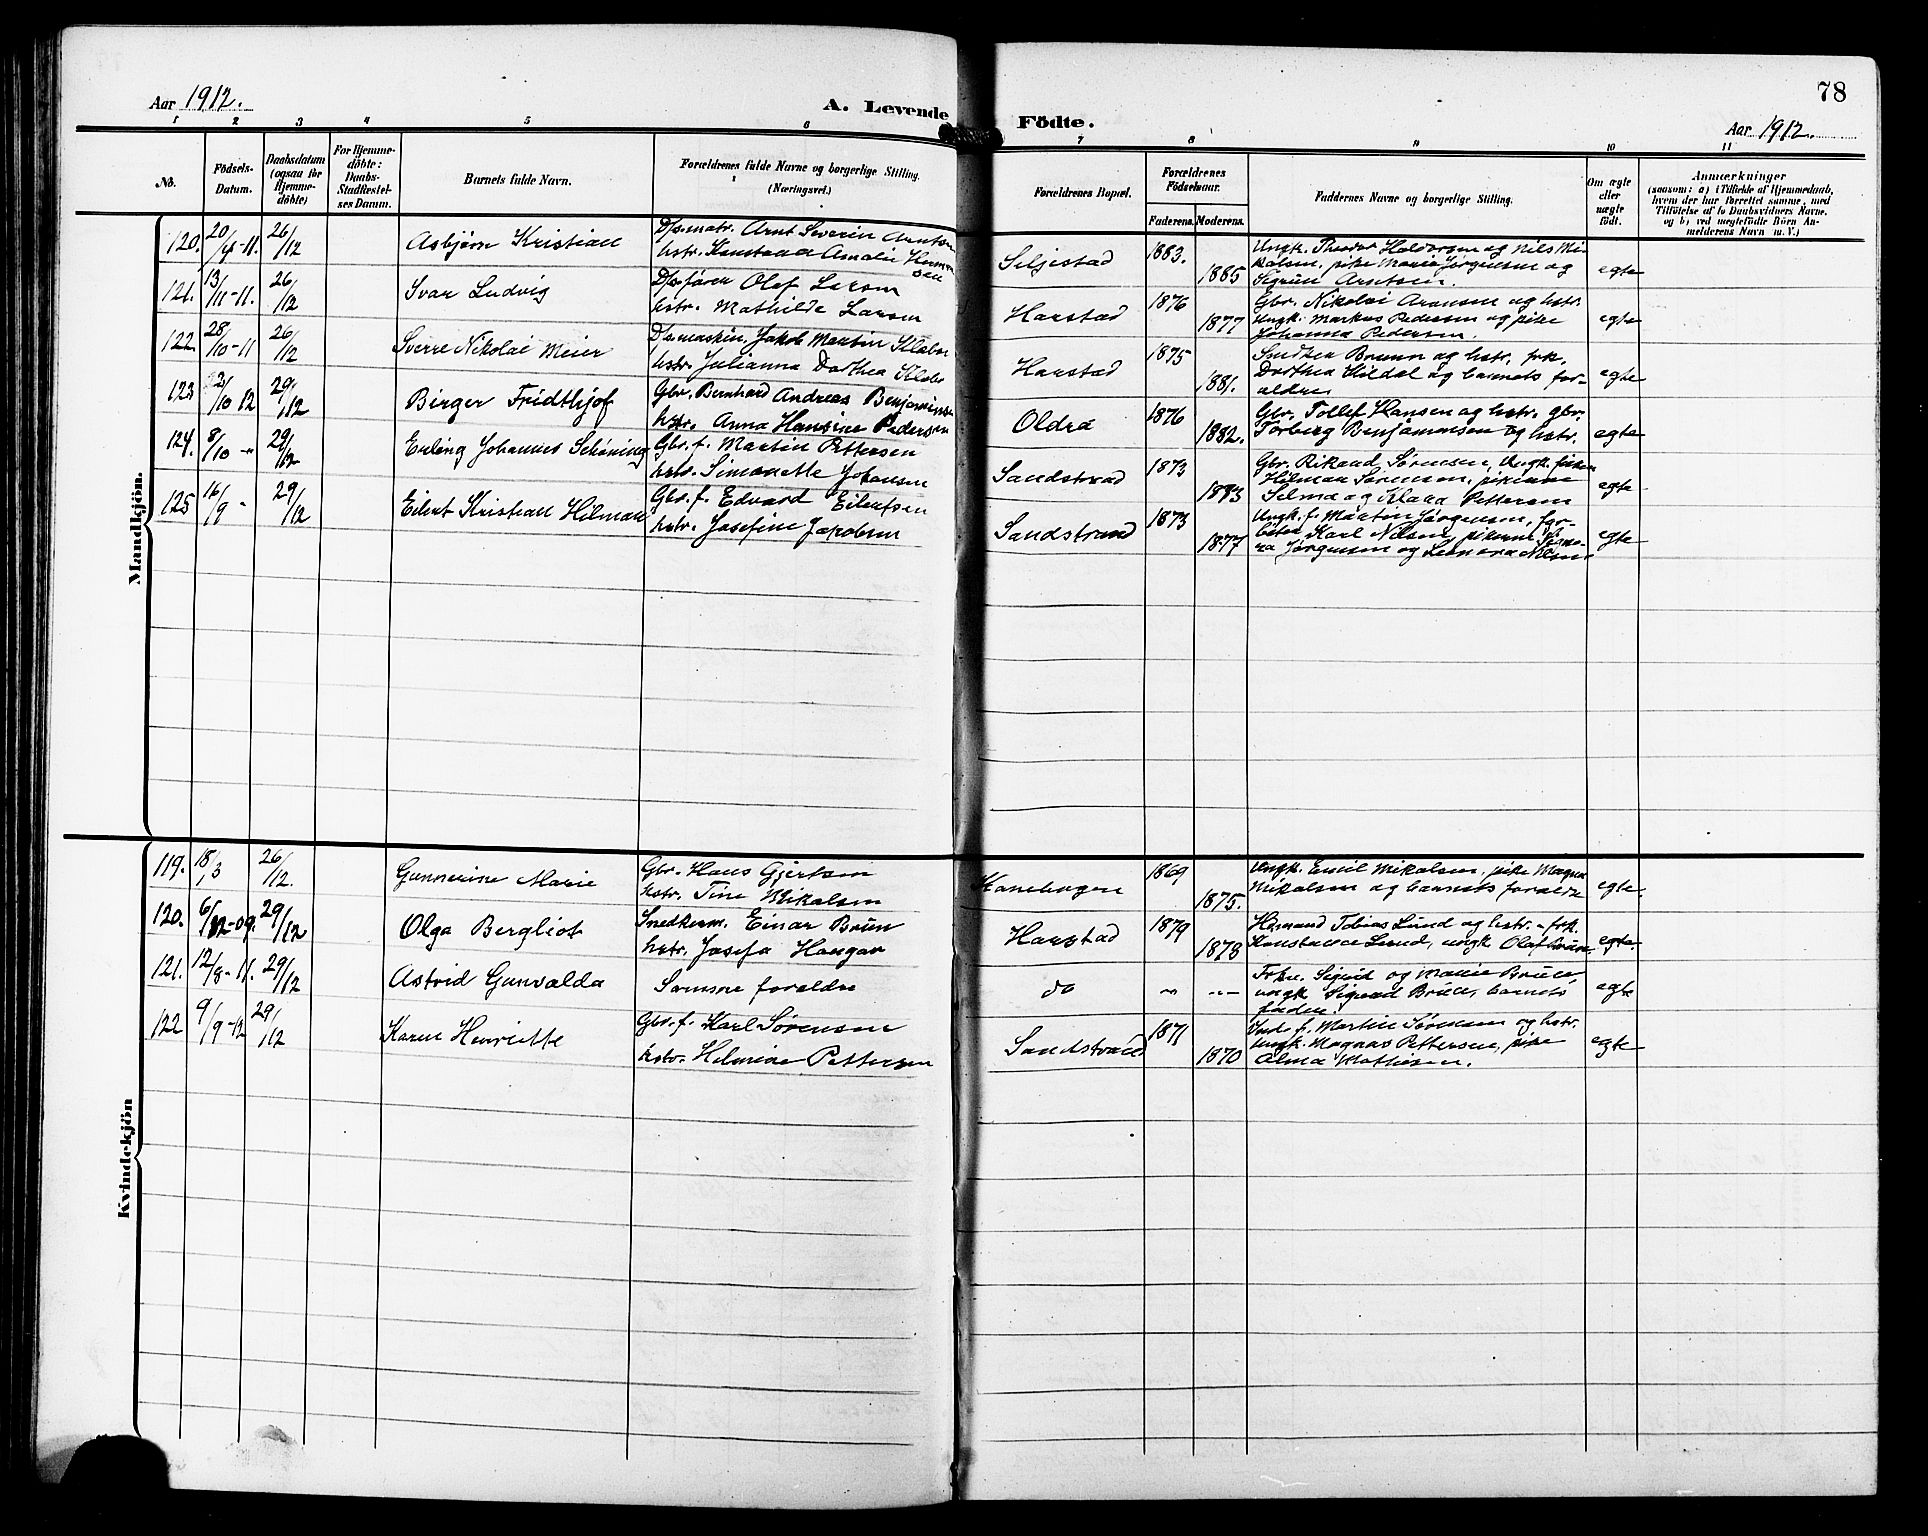 Aar 1912.
A. Levende
Födte.
78
Aar 1912.
1 2 3 4 5 6 7 8 9 10 11
No.
Födsels-
Datum.
Daabsdatum
(ogsaa for
Hjemme-
döbte)
For Hjemme-
döbte:
Daabs-
Stadfæstel-
ses Datum.
Barnets fulde Navn.
Forældrenes fulde Navne og borgerlige Stilling.
(Næringsvei.)
Forældrenes Bopæl.
Forældrenes
Födselsaar.
Faderens. Moderens.
Faddernes Navne og borgerlige Stilling.
Om ægte
eller
uægte
födt.
Anmærkninger
(saasom: a) i Tilfælde af Hjemmedaab,
hvem der har forrettet samme, med
Tilföielse af to Daabsvidners Navne.
og b) ved uægtefödte Börn An-
melderens Navn m. V.)
Mandkjön.
120. 20/4-11. 26/12 Asbjørn Kristian
D/s.matr. Arnt Severin Arntsen
hstr. Konstanse Amalie Herman
sen
Seljestad 1883. 1885
Ungk. Theodor Haldorsen og Nils Mi-
kalsen, pike Marie Jørgensen og
Sigrun Arntsen.
egte
121. 13/11-11. 26/12 Svar Ludvig
D/sfører Olaf Larsen
hstr. Mathilde Larsen
Harstad 1876 1877
Gbr. Nikolai Aronsen og hstr.
Ungk. Markus Pedersen og pike
Johanna Pedersen.
egte
122. 28/10-11 26/12 Sverre Nikolai Meier
D/s.maskin. Jakob Martin Klæbo
hstr. Julianna Dorthea Klæbo
Harstad 1875 1881.
Bruun og hstr. frk.
Dorthea Hildal og barnets for-
ældre
egte
123 2/10 12 29/12 Birger Fridthjof
Gbr. Bernhard Andreas Benjaminsen
hstr. Anna Hansine Pedersen
Oldra 1876 1882.
Gbr. Tollef Hansen og hstr. gbr.
Torberg Benjaminsen og hstr.
egte
124. 8/10 -" 29/12 Erling Johannes Schøning
Gbr. f. Martin Pettersen
hstr. Simonette Johansen
Sandstrad 1873 1873
Gbr. Rikard Sørensen, Ungk. fisker
Hilmar Sørensen, pikerne
Selma og Klara Pettersen
egte
125 16/9 - 29/12 Eilert Kristian Hilmar
Gbr. f. Edvard Eilertsen
hstr. Josefine Jakobsen
Sandstrand 1873 1877
Ungk. f. Martin Jørgensen, for-
Karl Nilsen, pikerne
Jørgensen og Leonara Nilsen
egte
Kvindekjön
119. 18/3 26/12. Gunnerine Marie
Gbr. Hans Gjertsen
hstr. Tine Mikalsen
Kanebogen 1869 1875.
Ungk. Emil Mikalsen, pike Magna
Mikalsen og barnets forældre
egte.
120. 6/12-09. 29/12 Olga Bergliot
Snedkerm. Einar Bruun
hstr. Josefa Haugar
Harstad 1879 1878
Hr. mand Tobias Lund og hstr. - frk.
Konstance Lund, ungk Olaf Bruun.
egte.
121. 12/8-11. 29/12 Astrid Gunvalda
Samme foraldre
do " "
Frkn. Sigrid og Marie Bruce
ungk Sigvard Bruce, barnets
fader.
egte
122 9/9-12 29/12 Karen Henriette
Gbr. f. Karl Sørensen
hstr. Helmine Pettersen
Sandstrand 1871 1870
Inds. f. Martin Sørensen og hstr.
Ungk. Magnas Pettersen, pike
Alma Mathisen.
egte